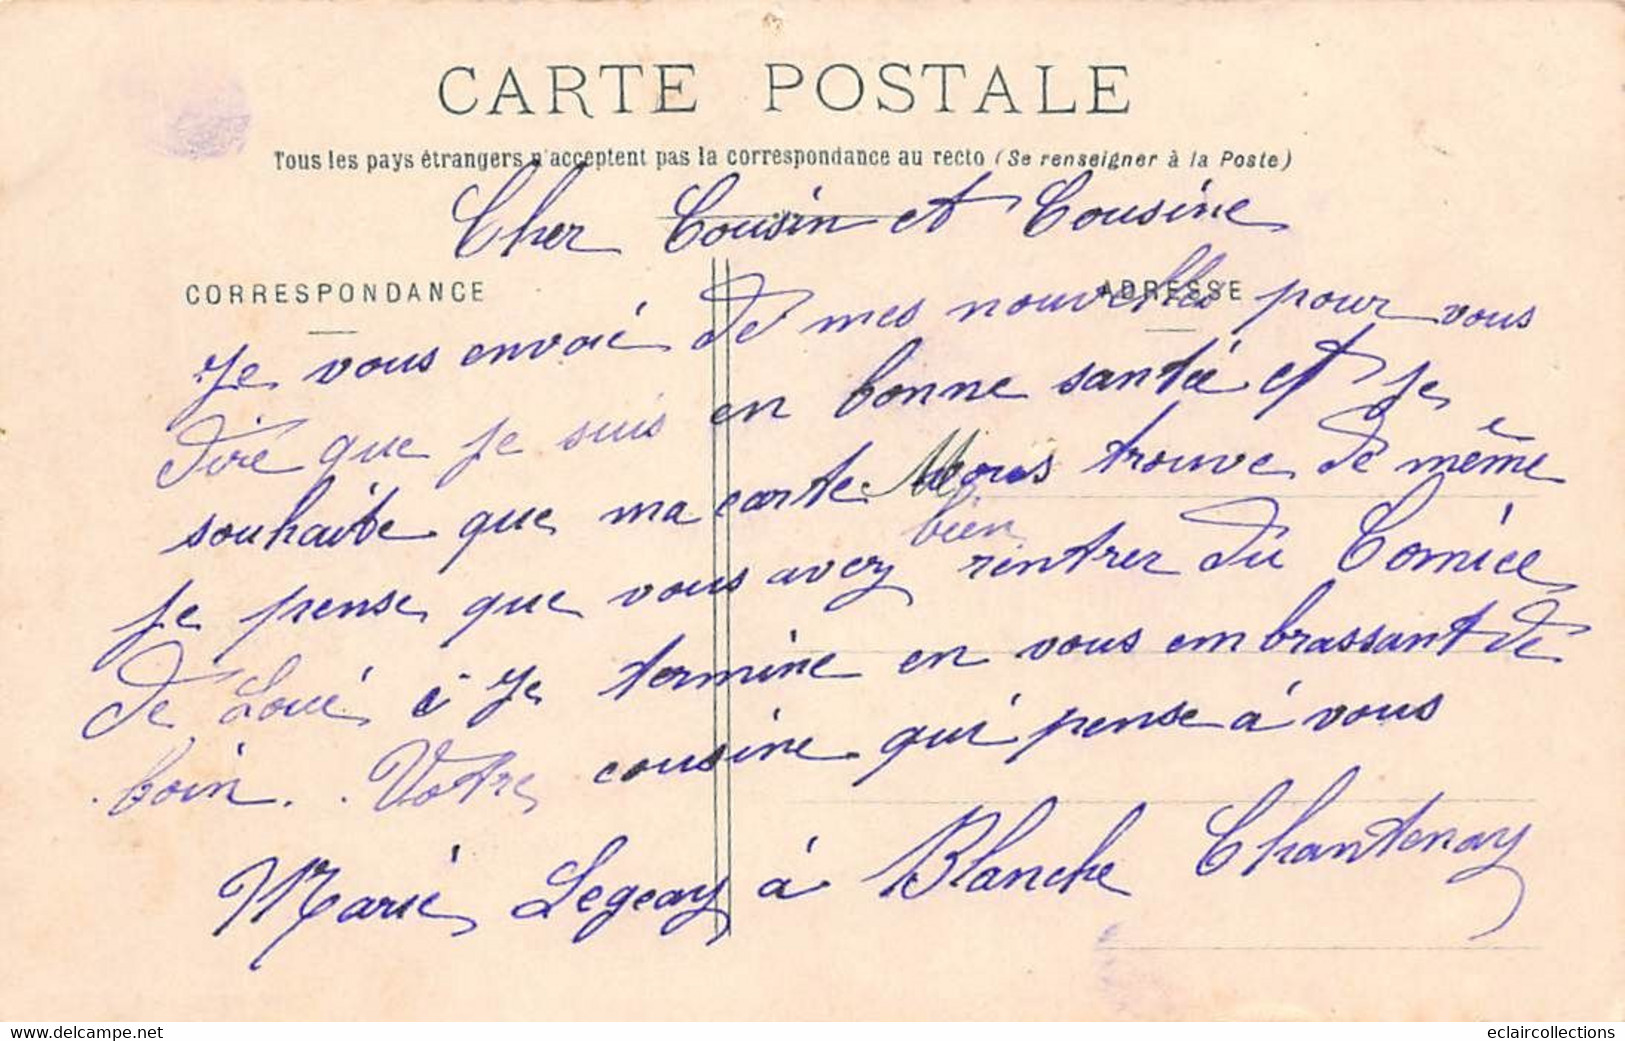 CARTE POSTALE
Tous les pays étrangers n'acceptent pas la correspondance au recto (Se renseigner à la Poste)
Cher Cousin et Cousine
CORRESPONDANCE
ADRESSE
Je vous envoié de mes nouvelles pour vous
dire que je suis en bonne santée et je
souhaite que ma carte Vous trouve de même
je pense que vous avez bien rentrer du Comice
de Loué Je termine en vous embrassant de
loin. Votre cousine qui pense à vous
Marie Legeay à Blanche Chantenay
www.delcampe.net
eclaircollections